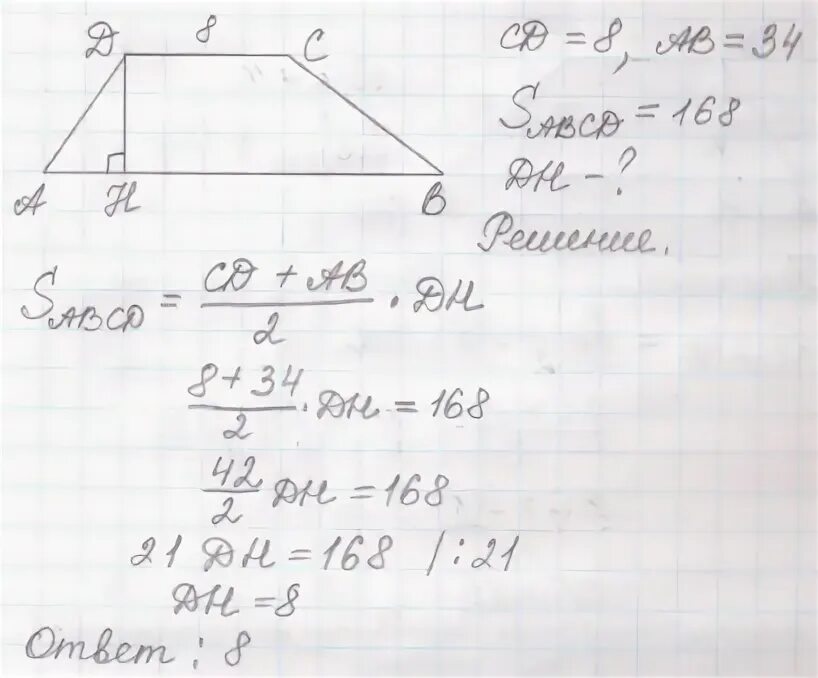 D 8 C
A H B
CD = 8, AB = 34
S_ABCD = 168
DH - ?
Решение.
S_ABCD = (CD + AB) / 2 · DH
(8 + 34) / 2 · DH = 168
42 / 2 DH = 168
21 DH = 168 | : 21
DH = 8
Ответ : 8